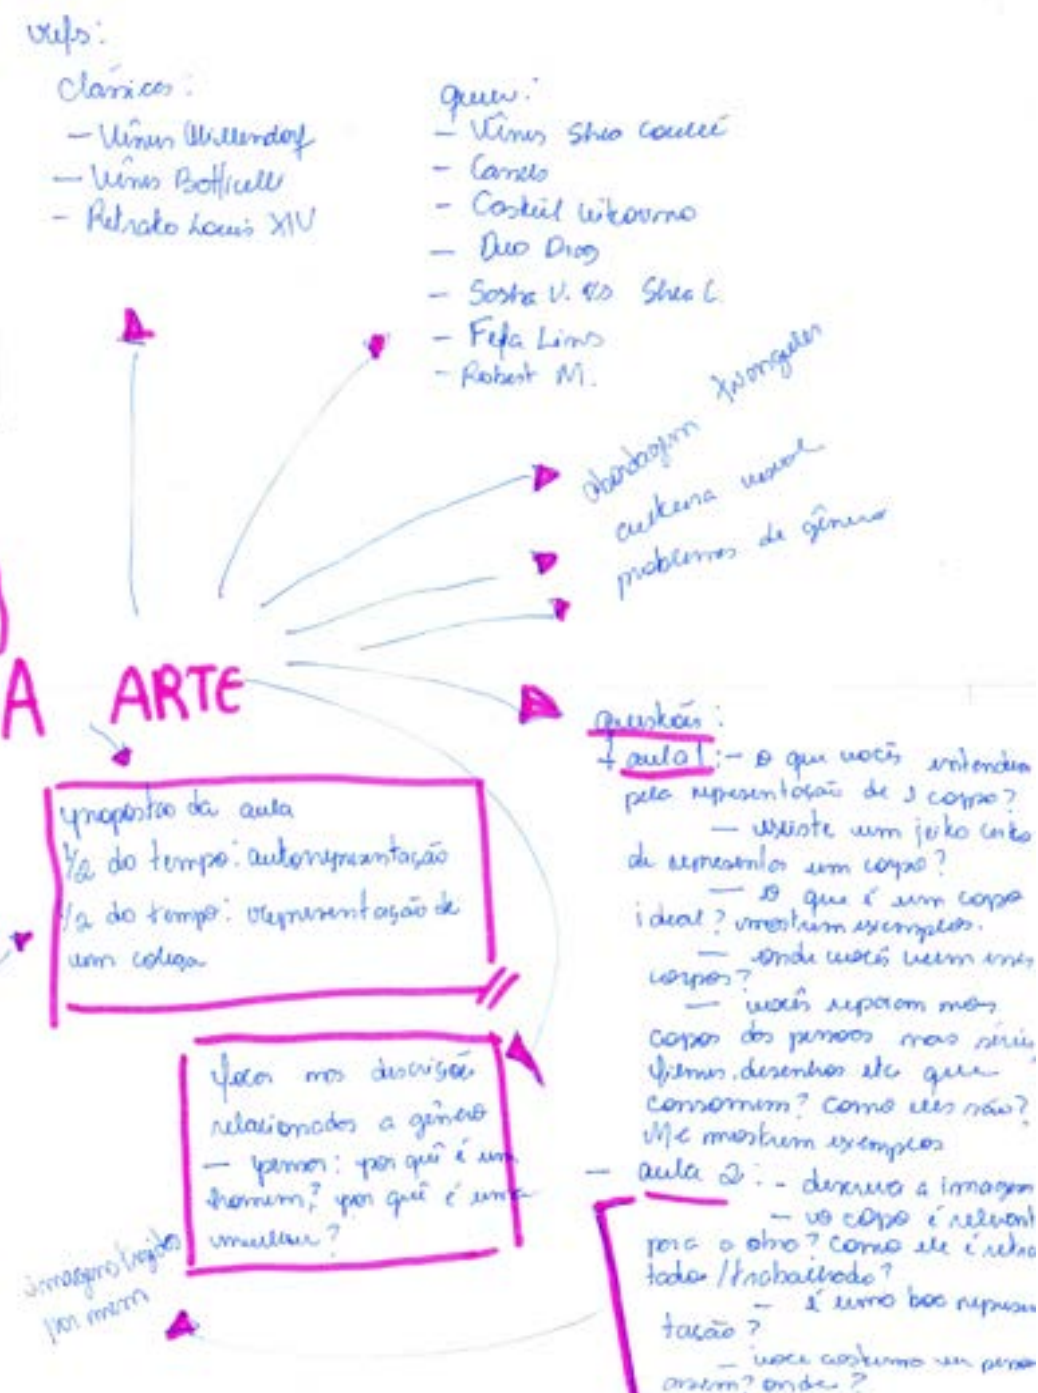 refs:
Clássicos:
- Vênus Willendorf
- Vênus Botticelli
- Retrato Louis XIV
queer:
- Vênus Shea Couleé
- Canels
- Duo Drag
- Sasha V. e/ou Shea C.
- Fefa Lins
- Robert M.
abordagem triangular
cultura visual
problemas de gênero
A ARTE
propostas da aula
1/2 do tempo: autorrepresentação
1/2 do tempo: representação de
um colega
focar nas descrições
relacionadas a gênero
- pensar: por quê é um
homem? por quê é uma
mulher?
imagens trazidas
por mem
questões:
+ aula 1: - o que vocês entendem
pela representação de 1 corpo?
- existe um jeito certo
de representar um corpo?
- o que é um corpo
ideal? mostrem exemplos.
- onde vocês veem esses
corpos?
- vocês reparam nos
corpos das pessoas nas séries
filmes, desenhos etc que
consomem? Como eles são?
Me mostrem exemplos
- aula 2: - descreva a imagem
- o corpo é relevant
para a obra? Como ele é retra
tado/trabalhado?
- é uma boa represen
tação?
- você costuma ver pesso
assim? onde?